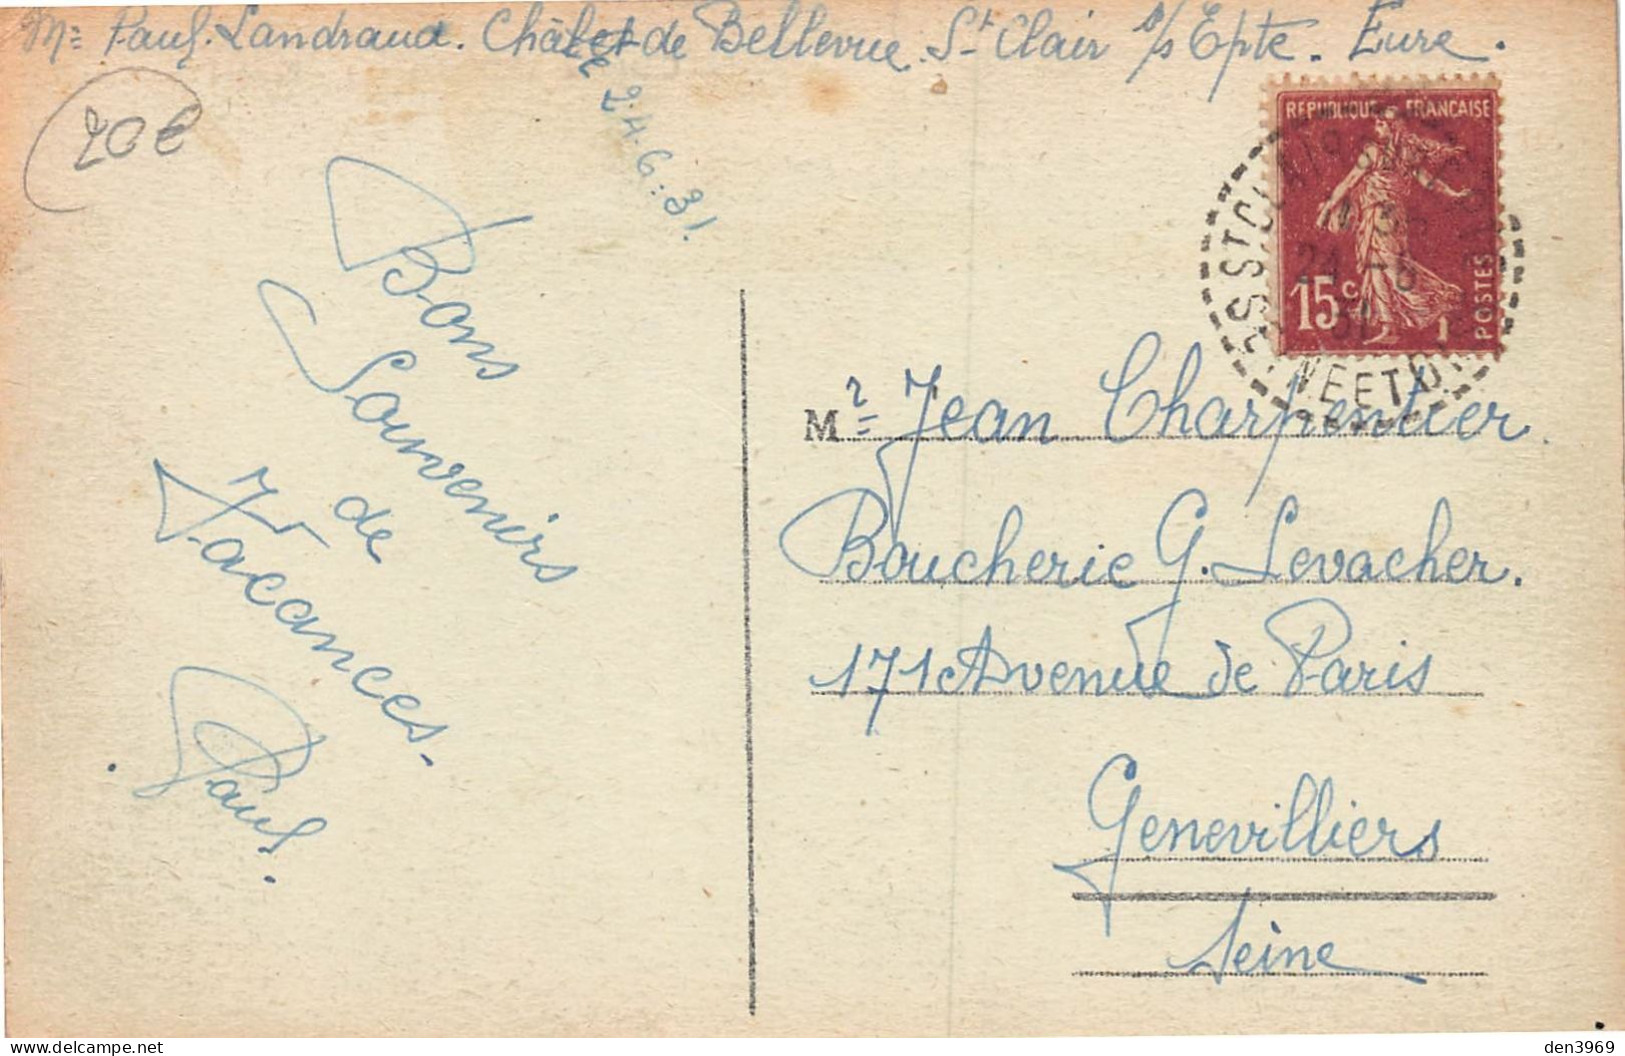 Mr Paul Landraud. Châlet de Bellevue. St Clair s/s Epte. Eure.
le 24.6.31.
20€
Bons
Souvenirs
de
Vacances.
Paul.
REPUBLIQUE FRANÇAISE
15c
POSTES
ST CLAIR SUR EPTE
24 -6
31
NE ET OI
Mr Jean Charpentier
Boucherie G. Levacher.
171 Avenue de Paris
Genevilliers
Seine
den3969